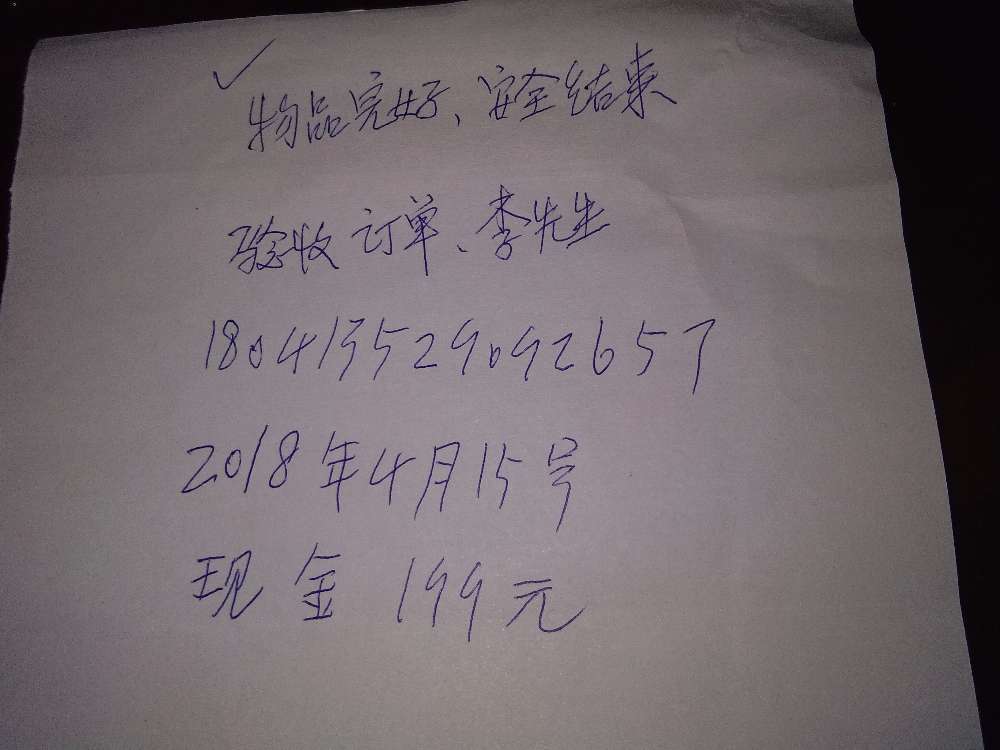 ✓
物品完好、安全结束
验收订单、李先生
180415529092657
2018年4月15号
现金 199元